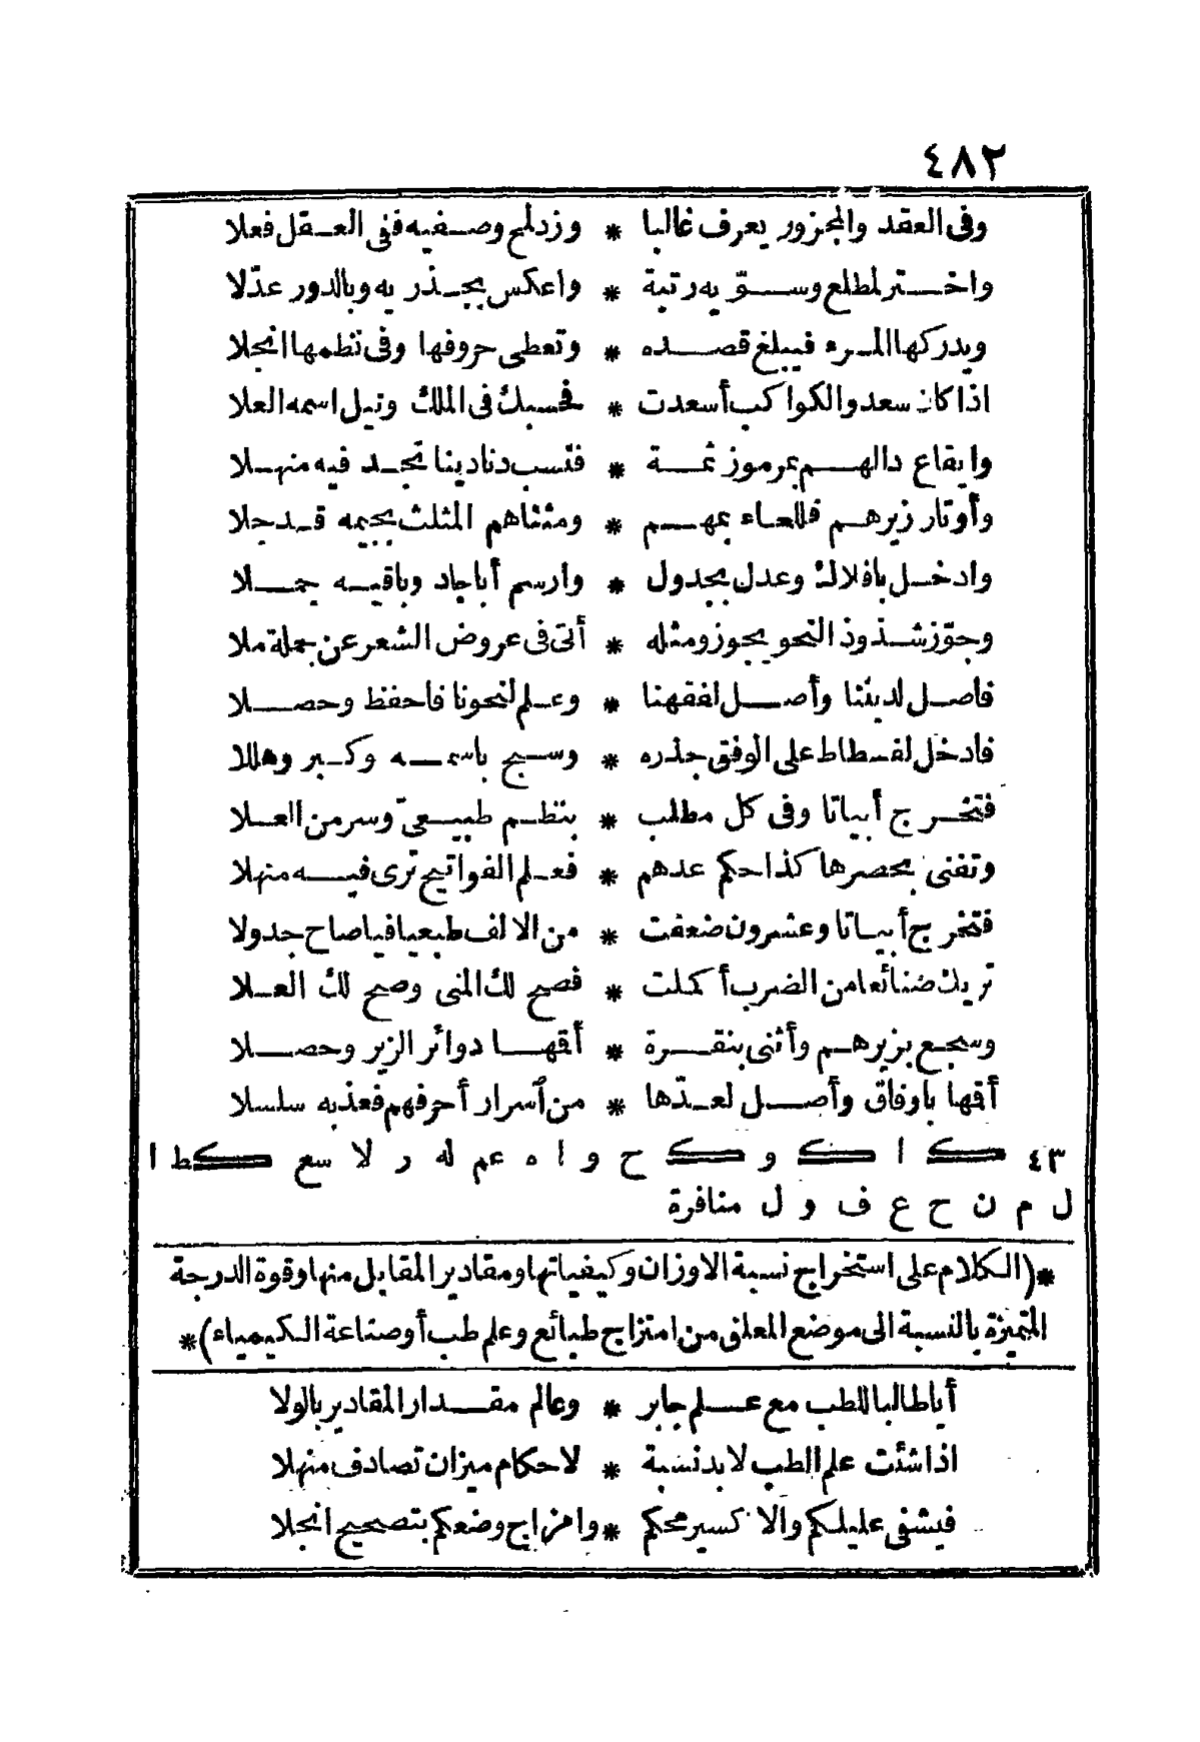 ٤٨٢
وفى العقد والمجزور يعرف غالبا * وزد لمح وصفيه ففى العقل فعلا
واختر لمطلع وسوّ به رتبة * واعكس بجذر يه وبالدور عدّلا
ويدركها المرء فيبلغ قصده * وتعطى حروفها وفى نظمها انجلا
اذا كان سعد والكواكب أسعدت * فحسبك فى الملك ونيل اسمه العلا
وايقاع دالهم بمرموز ثمة * فنسب دنادينا تجد فيه منهلا
وأوتار زيرهم فللحاء بمهم * ومثناهم المثلث بجيمه قد جلا
وادخل بافلاك وعدل بجدول * وارسم أباجاد وباقيه جملا
وجوّز شذوذ النحو يجوز ومثله * أتى فى عروض الشعر عن جملة ملا
فاصل لديننا وأصل لفقهنا * وعلم لنحونا فاحفظ وحصلا
فادخل لفسطاط على الوفق جذره * وسبح باسمه وكبر وهللا
فتخرج أبياتا وفى كل مطلب * بنظم طبيعىّ وسر من العلا
وتفنى بحصرها كذا حكم عدهم * فعلم الفواتيح ترى فيه منهلا
فتخرج أبياتا وعشرون ضعفت * من الالف طبعيا فيا صاح جدولا
تريك صنائعا من الضرب أكملت * فصح لك المنى وصح لك العلا
وسجع بزيرهم وأثنى بنقرة * أقهـا دوائر الزير وحصلا
أقها باوفاق وأصل لعدّها * من أسرار أحرفهم فعذبه سلسلا
٤٣ ك ا ك و ك ح و ا ه عم له ر لا سع كط ا
ل م ن ح ع ف و ل منافرة
*(الكلام على استخراج نسبة الاوزان وكيفياتها ومقادير المقابل منها وقوة الدرجة
المتميزة بالنسبة الى موضع المعلق من امتزاج طبائع وعلم طب أو صناعة الكيمياء)*
أيا طالبا للطب مع علم جابر * وعالم مقدار المقادير بالولا
اذا شئت علم الطب لابد نسبة * لاحكام ميزان تصادف منهلا
فيشفى عليلكم والاكسير محكم * وامزاج وضعكم بتصحيح انجلا